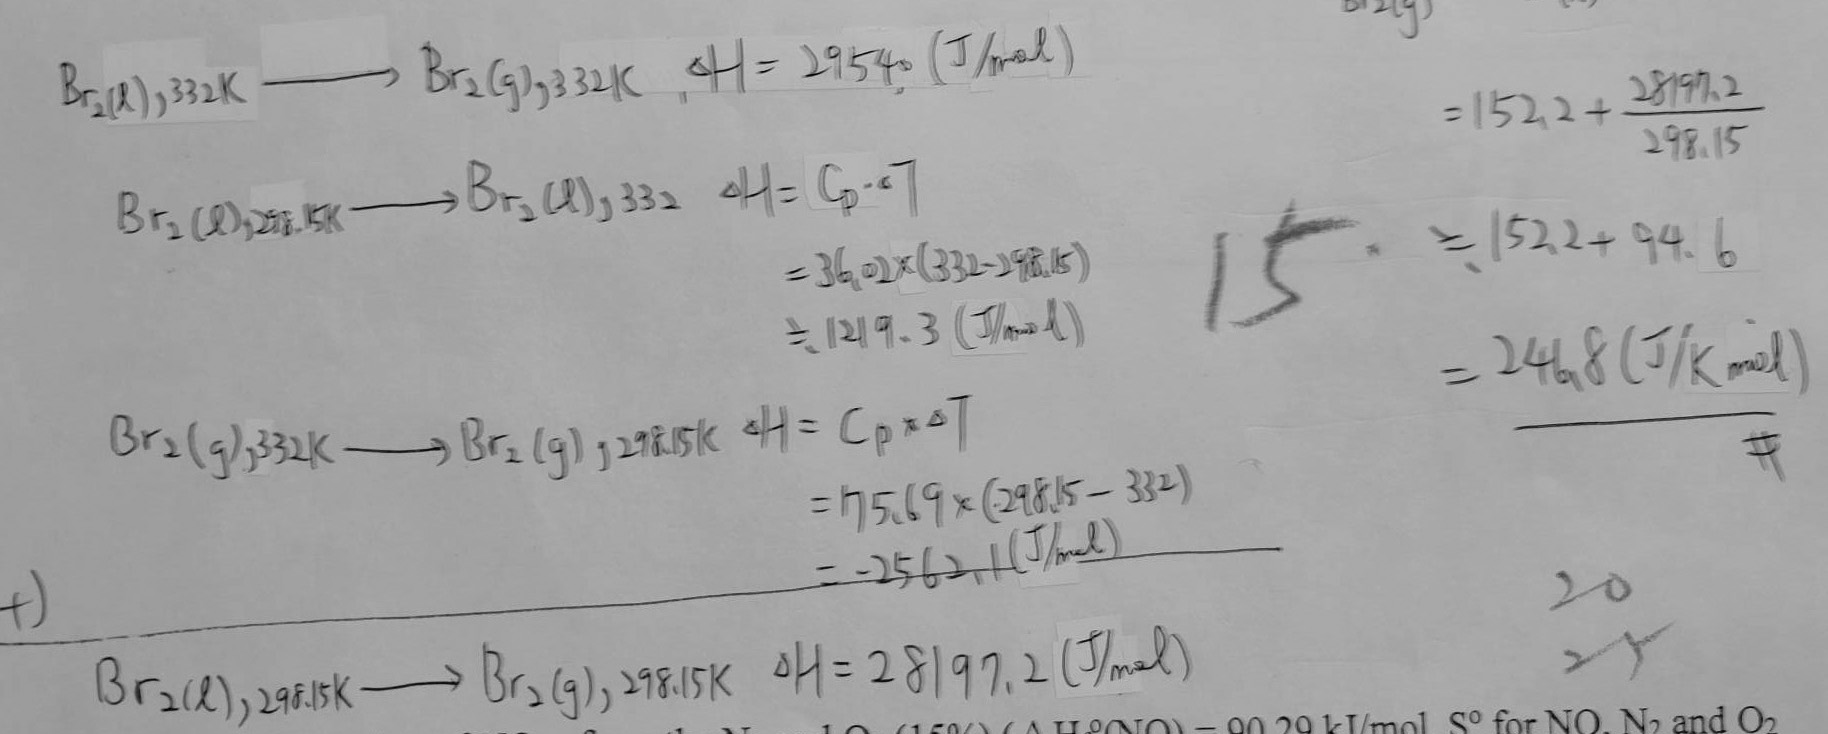 Br₂(l), 332K ⟶ Br₂(g), 332K, ΔH = 29540 (J/mol)
Br₂(l), 298.15K ⟶ Br₂(l), 332 ΔH = Cp·ΔT
= 36.02×(332-298.15)
≒ 1219.3 (J/mol)
Br₂(g), 332K ⟶ Br₂(g), 298.15K ΔH = Cp×ΔT
= 75.69×(298.15-332)
= -2562.1 (J/mol)
+)
Br₂(l), 298.15K ⟶ Br₂(g), 298.15K ΔH = 28197.2 (J/mol)
Br₂(g)
= 152.2 + 28197.2/298.15
≒ 152.2 + 94.6
= 246.8 (J/K mol)
#
15
20
(15%) (ΔH°(NO) = 90.29 kJ/mol, S° for NO, N₂ and O₂